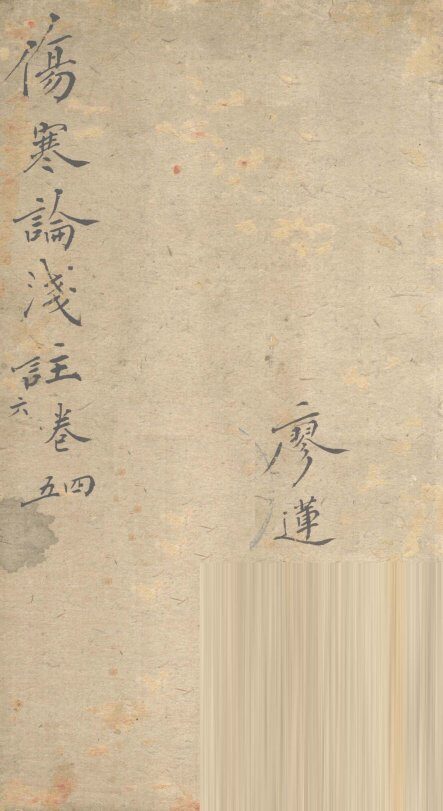 廖蓮
傷寒論淺註卷四五六